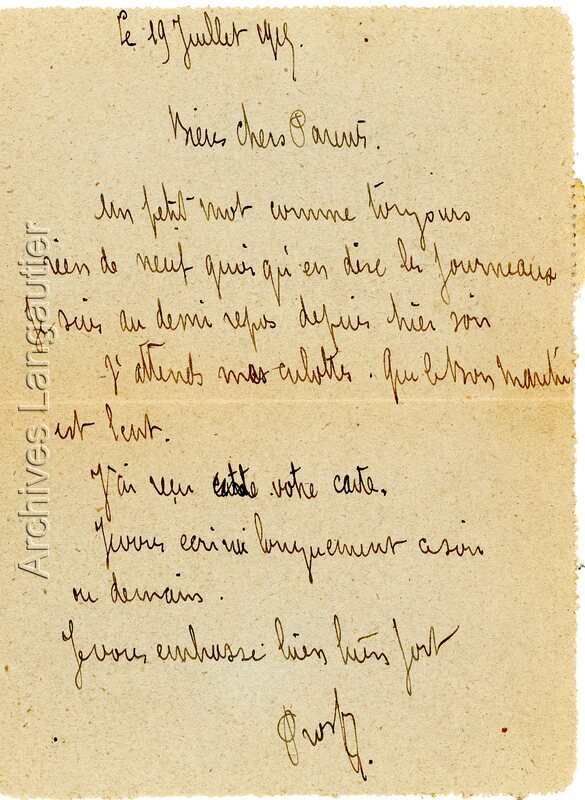 Le 19 Juillet 1915.
Biens chers Parents.
Un petit mot comme toujours
rien de neuf qu'en dise les Journeaux
Je suis au demi repos depuis hier soir
J'attends mes culottes. Que le Bon Marché
est lent.
J'ai reçu votre carte.
Je vous ecrirai longuement ce soir
ou demains.
Je vous embrasse biens biens fort
Archives Langautier